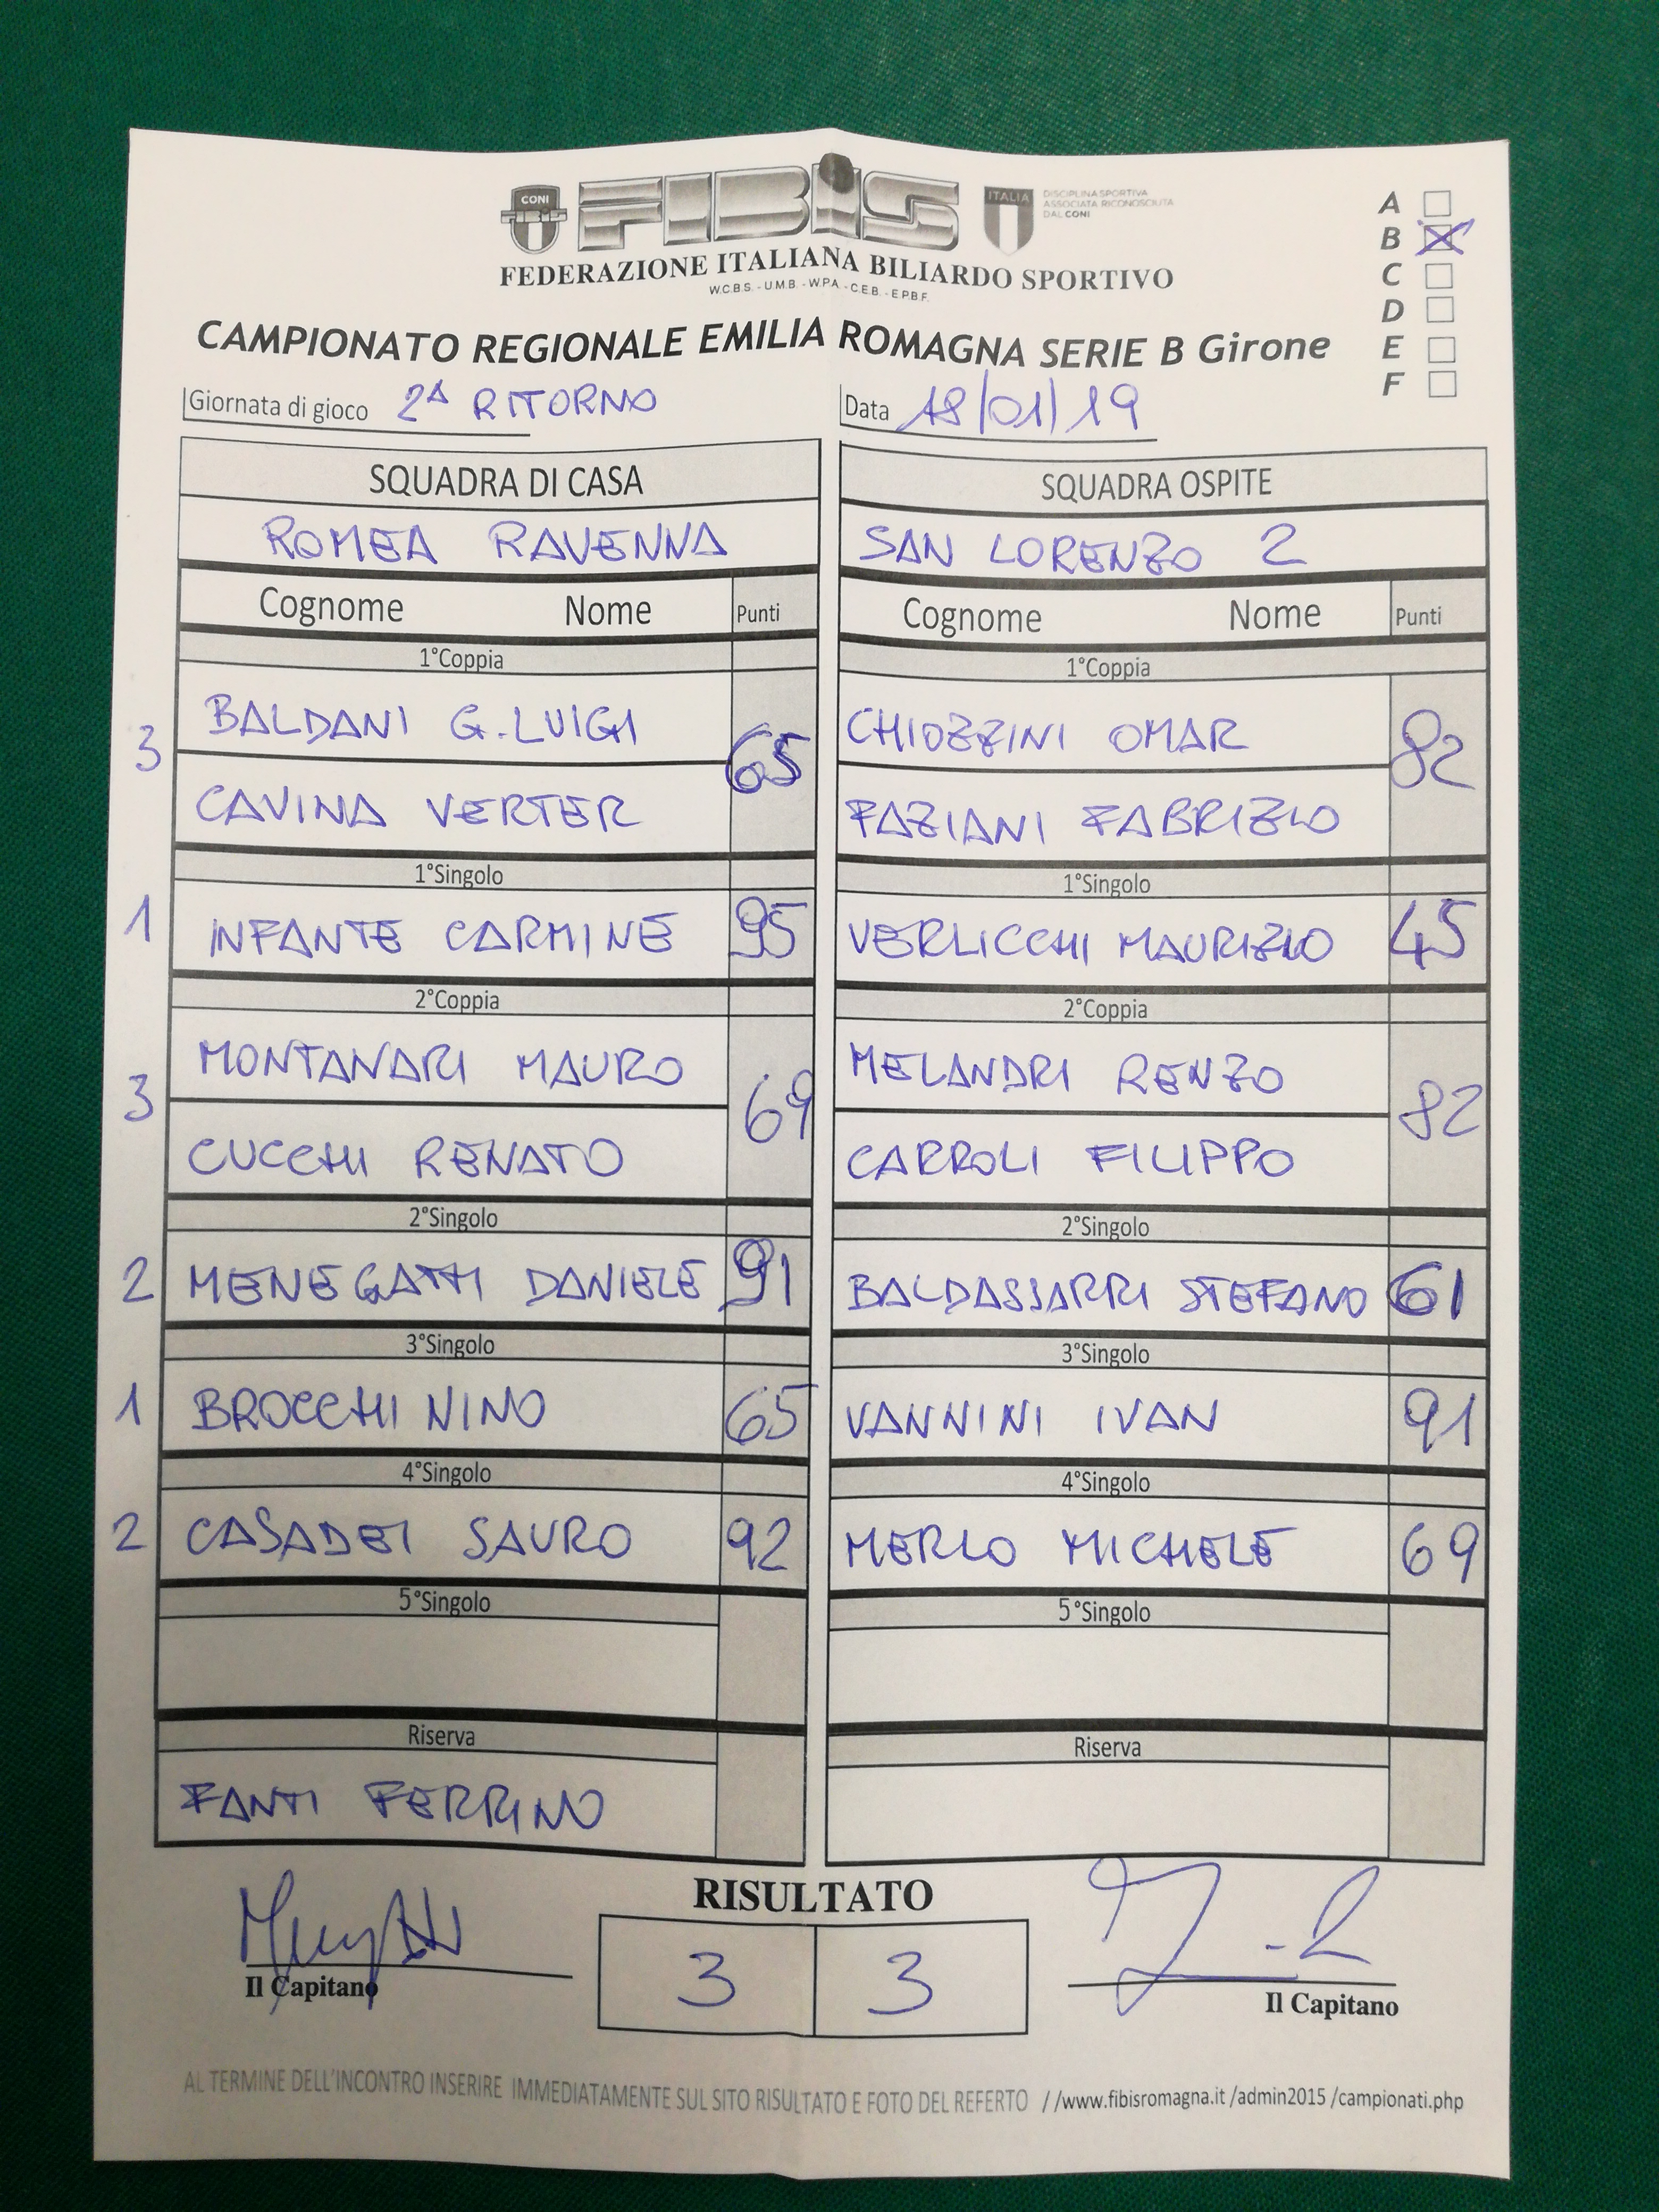 CONI
FIBiS
ITALIA
DISCIPLINA SPORTIVA
ASSOCIATA RICONOSCIUTA
DAL CONI
FEDERAZIONE ITALIANA BILIARDO SPORTIVO
W.C.B.S. - U.M.B. - W.P.A. - C.E.B. - E.P.B.F.
A
B
C
D
E
F
CAMPIONATO REGIONALE EMILIA ROMAGNA SERIE B Girone
Giornata di gioco 2ª RITORNO
Data 18/01/19
SQUADRA DI CASA
SQUADRA OSPITE
ROMEA RAVENNA
SAN LORENZO 2
Cognome Nome Punti
Cognome Nome Punti
1°Coppia
1°Coppia
3 BALDANI G.LUIGI 65
CAVINA VERTER
CHIOZZINI OMAR 82
FAZIANI FABRIZIO
1°Singolo
1°Singolo
1 INFANTE CARMINE 95
VERLICCHI MAURIZIO 45
2°Coppia
2°Coppia
3 MONTANARI MAURO 69
CUCCHI RENATO
MELANDRI RENZO 82
CARROLI FILIPPO
2°Singolo
2°Singolo
2 MENEGATTI DANIELE 91
BALDASSARRI STEFANO 61
3°Singolo
3°Singolo
1 BROCCHI NINO 65
VANNINI IVAN 91
4°Singolo
4°Singolo
2 CASADEI SAURO 92
MERLO MICHELE 69
5°Singolo
5°Singolo
Riserva
Riserva
FANTI FERRINO
RISULTATO
3 3
Il Capitano
Il Capitano
AL TERMINE DELL'INCONTRO INSERIRE IMMEDIATAMENTE SUL SITO RISULTATO E FOTO DEL REFERTO //www.fibisromagna.it /admin2015 /campionati.php